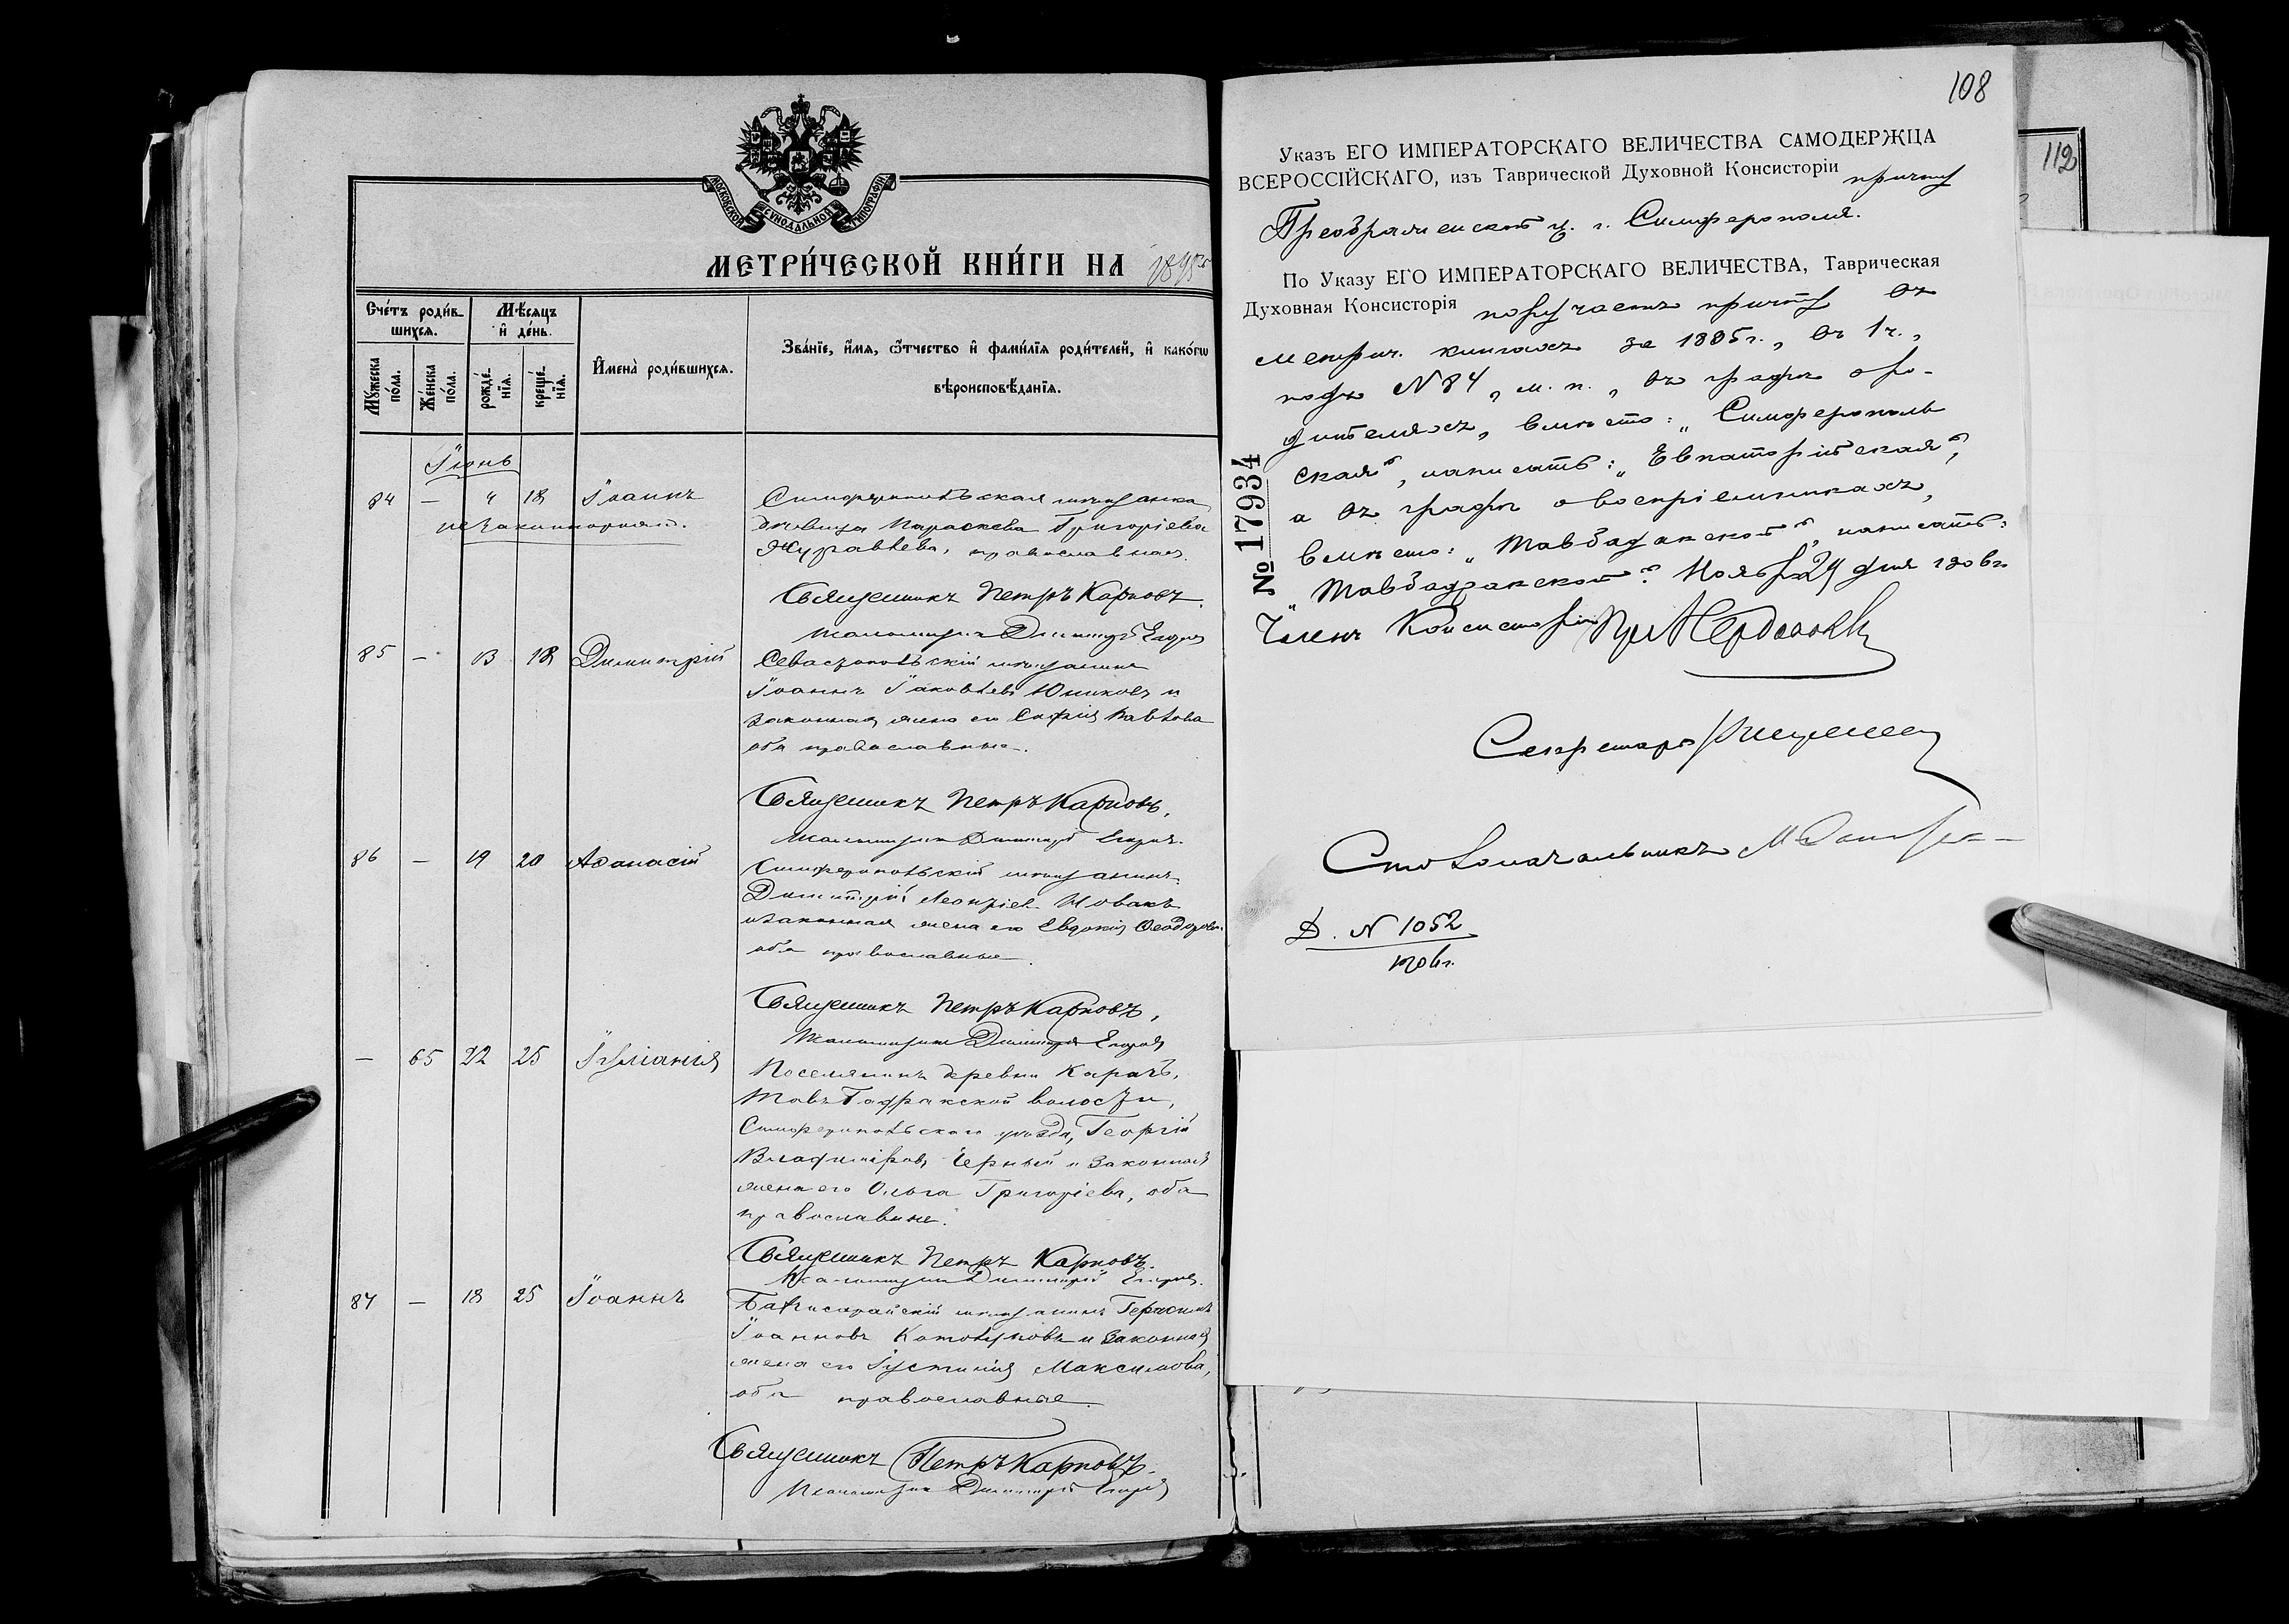 МОСКОВСКОЙ СУНОДАЛЬНОЙ ТИПОГРАФІИ
МЕТРИ́ЧЕСКОЙ КНИ́ГИ НА 1895
Сче́тъ роди́в-
шихся.
Мѣ́сяцъ
и҆ де́нь.
Мꙋ́жеска
по́ла.
Же́нска
по́ла.
рожде́-
нїя.
креще́-
нїя.
И҆мена̀ роди́вшихся.
Зва́нїе, и҆́мя, ѻ҆́тчество и҆ фами́лїя роди́телей, и҆ како́гѡ
вѣроисповѣ́данїя.
Іюнь
84 — " 18 Іоаннъ
незаконнорожд.
Симферопольская мѣщанка
дѣвица Параскева Григоріева
Журавлева, православная.
Священникъ Петръ Карповъ.
Псаломщикъ Димитрій
85 — 13 18 Димитрій
Севастопольскій мѣщанинъ
Іоаннъ Іаковлевъ Юниковъ и
законная жена его Софія Павлова
оба православные.
Священникъ Петръ Карповъ.
Псаломщикъ Димитрій
86 — 19 20 Аѳанасій
Симферопольскій мѣщанинъ
Димитрій Леонтіевъ Новакъ
и законная жена его Евдокія Ѳеодорова
оба православные.
Священникъ Петръ Карповъ,
Псаломщикъ Димитрій
— 65 22 25 Іуліанія
Поселянинъ деревни Карачъ,
Тавъ Бадракской волости,
Симферопольскаго уѣзда, Георгій
Владиміровъ Черный и законная
жена его Ольга Григоріева, оба
православные.
Священникъ Петръ Карповъ.
Псаломщикъ Димитрій
87 — 18 25 Іоаннъ
Бахчисарайскій мѣщанинъ Герасимъ
Іоанновъ и законная
жена его Іустинія Максимова,
оба православные.
Священникъ Петръ Карповъ.
Псаломщикъ Димитрій
108
Указъ ЕГО ИМПЕРАТОРСКАГО ВЕЛИЧЕСТВА САМОДЕРЖЦА
ВСЕРОССІЙСКАГО, изъ Таврической Духовной Консисторіи причту
Преображенской ц. г. Симферополя.
По Указу ЕГО ИМПЕРАТОРСКАГО ВЕЛИЧЕСТВА, Таврическая
Духовная Консисторія поручаетъ причту въ
метрич. книгахъ за 1895 г., въ 1 ч.,
подъ № 84, м. п., въ графѣ о ро-
дителяхъ, вмѣсто: „Симферополь
ская", написать: „Евпаторійская",
а въ графѣ о воспріемникахъ,
вмѣсто: „Тавбадакской", написать:
„Тавбадракской". Ноября 24 дня 1906 г.
Членъ Консисторіи
Секретарь
Столоначальникъ
Д. № 1052
1906 г.
№ 17934
112